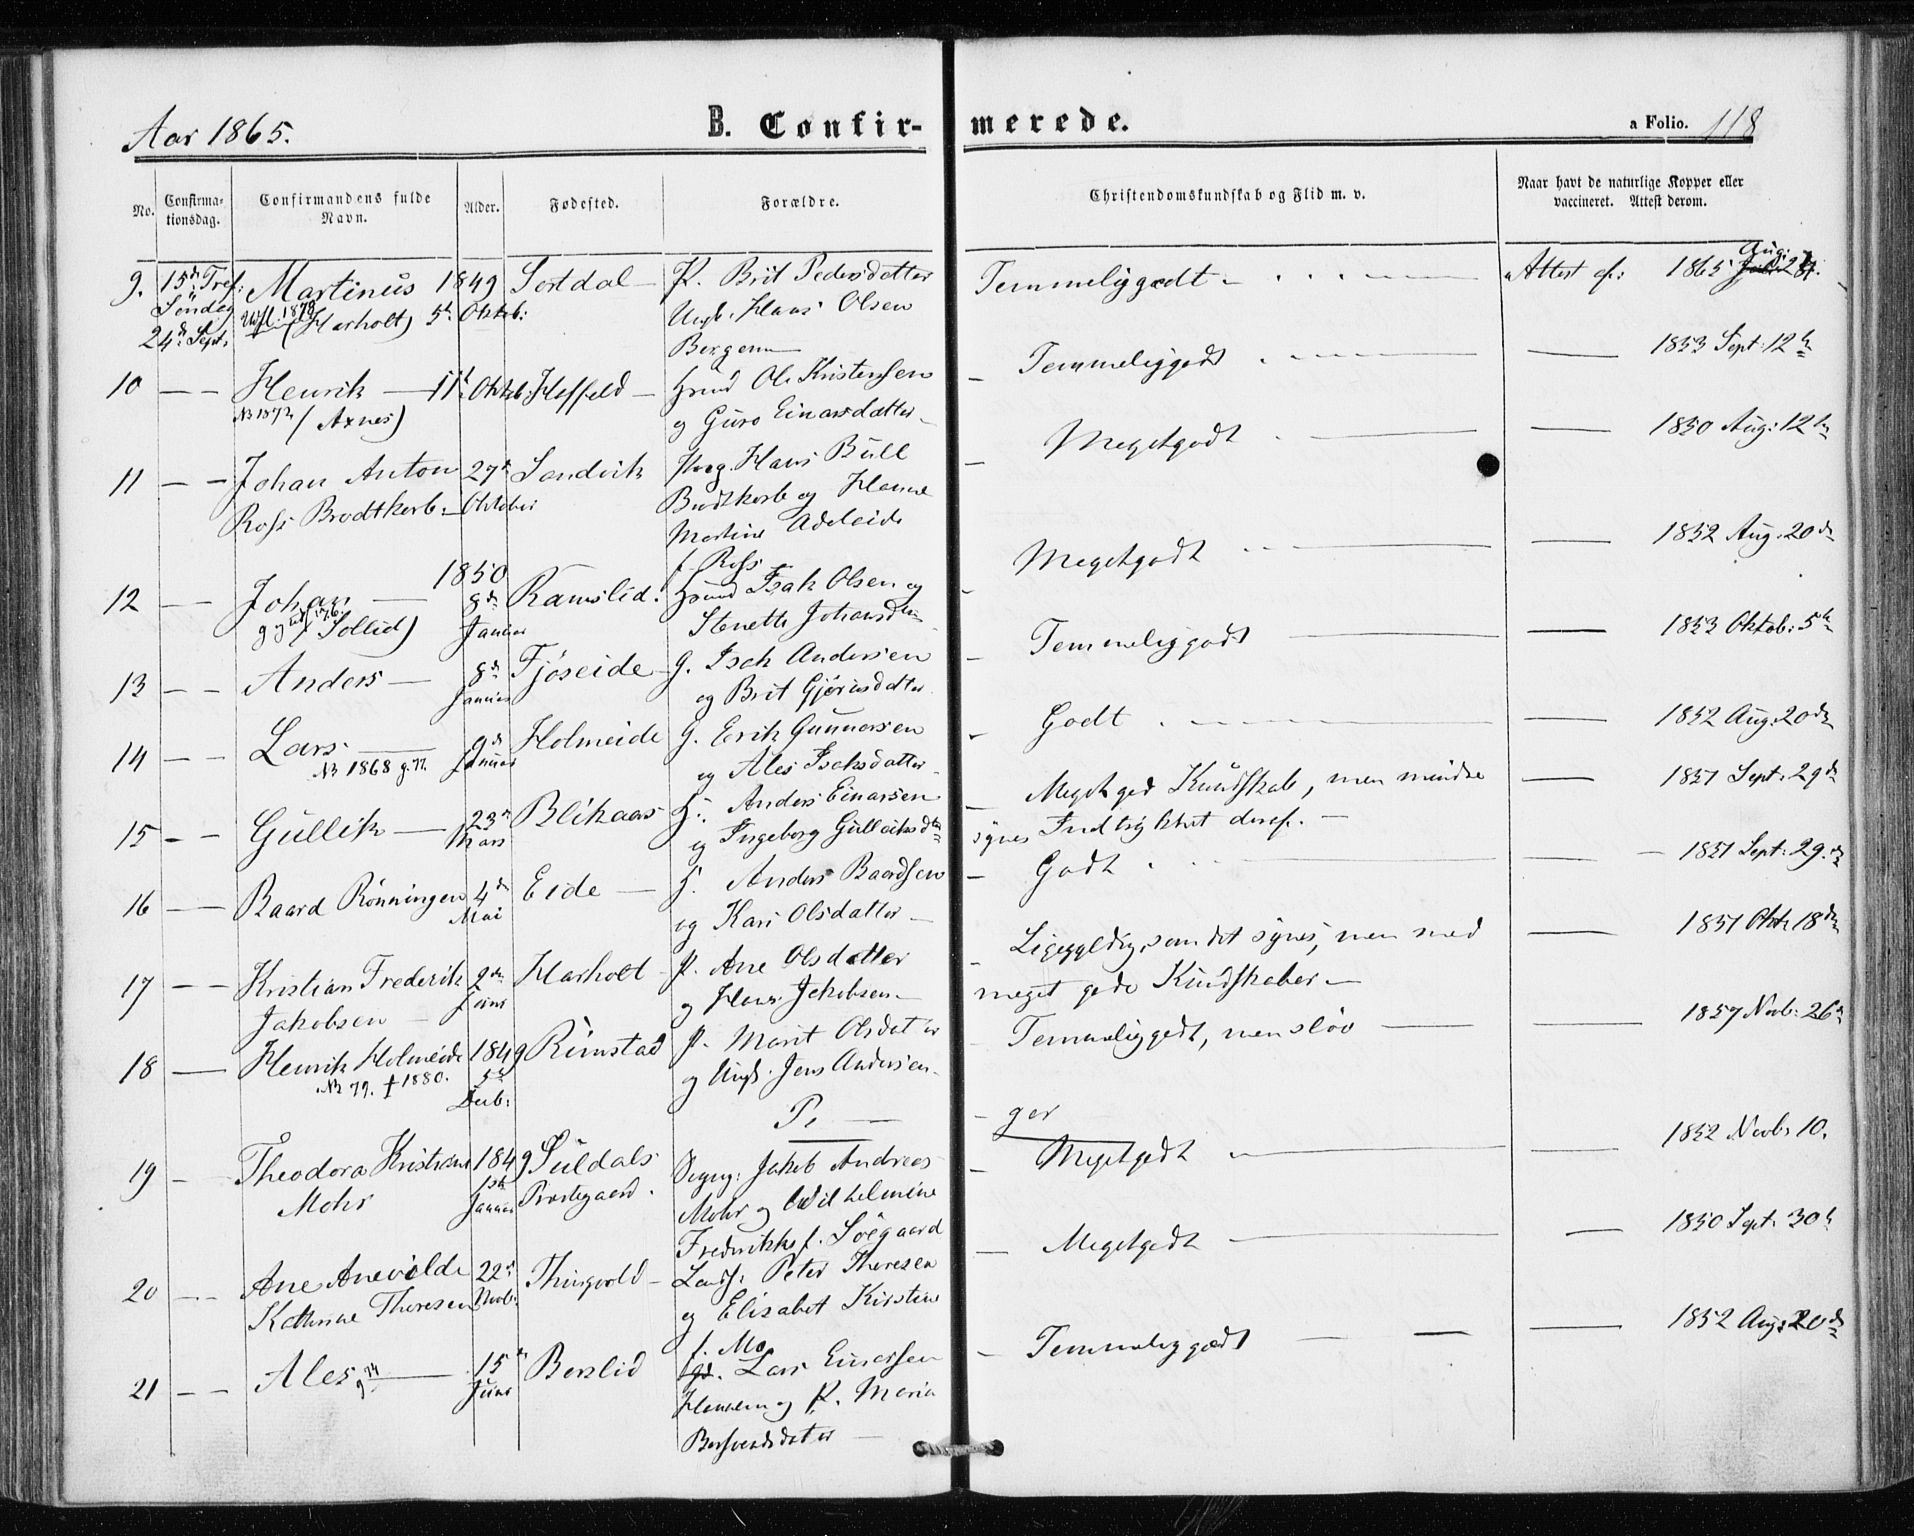 Aar 1865.
B. Confir- merede.
a Folio. 118
No.
Confirma-
tionsdag.
Confirmandens fulde
Navn.
Alder.
Fødested.
Forældre.
Christendomskundskab og Flid m. v.
Naar havt de naturlige Kopper eller
vaccineret. Attest derom.
9. 15de Tref: Martinus 1849 Sortdal — P. Brit Pedersdatter
Søndag (Harholt) 5t Oktob: Ungk. Hans Olsen
24d Sept. Bergem
Temmeliggodt — Attest af: 1865 Aug:
10 — — Henrik — 11t Oktob: — Ole Kristensen
No 1872 (Axnes) og Guro Einarsdatter
Temmeliggodt — 1853 Sept: 12te
11 — — Johan Anton 27d Sandvik Hans Bull
Ross Brodtkorb — Oktober Brodtkorb og Hanne
Martine Adelaide
f. Ross
Megetgodt — 1850 Aug: 12te
12 — Johan — 1850 Ramslid. Isak Olsen og
(Sollid) 8de Januar Johansdtr
Megetgodt — 1852 Aug: 20de
13 — — Anders — 8de Fjøseide — G. Isak Andersen
Januar og Brit Gjørusdatter
Temmeliggodt — 1853 Oktob: 5te
14 — — Lars — 9de Holmeide G. Erik Gunnarsen
No 1868 g. 77. Januar og Ales Isaksdatter
Godt — 1852 Aug: 20de
15 — — Gullik — 23d Blikaas G. Anders Einarsen
Mars og Ingeborg Gulleiksdtr
Meget god Kundskab, men mindre — 1851 Sept: 29de
synes Indtrykket deraf. —
16 — — Baard Rønningen 4de Eide — G. Anders Baardsen
Mai og Kari Olsdatter —
Godt — 1851 Sept: 29de
17 — — Kristian Frederik 2den Harholt — P. Ane Olsdatter
Jakobsen — Juni og Hans Jakobsen —
Ligegyldig, som det synes, men med — 1851 Okt: 18de
meget gode Kundskaber —
18 — Henrik Holmeide 1849 Rimstad P. Marit Olsdatter
No 79. † 1880. 5te og Ungk. Jens Andersen —
Decb:
Temmeliggodt, men sløv — 1857 Novb: 26de
Pi — ger
19 — Theodora Kristiane 1849 Suldals Jakob Andreas
Mohr 1ste Januar Præstegaard. Mohr og Wilhelmine
Frederikke f. Søegaard
Megetgodt — 1852 Novb: 10.
20 — — Ane Anevilde 22d Thingvold — Peter Theresen
Kathrine Theresen Novb: og Elisabet Kirstine
f. Mo
Megetgodt — 1850 Sept: 30te
21 — — Ales — 15de Berslid Lars Einarsen
Juni og P. Maria
Temmeliggodt — 1852 Aug: 20de